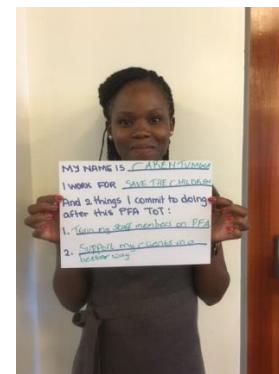 MY NAME IS
I WORK FOR SAVE THE CHILDREN
And 2 things I commit to doing
after this PFA TOT:
1. Training staff members on PFA
2. Support my clients in a
better way